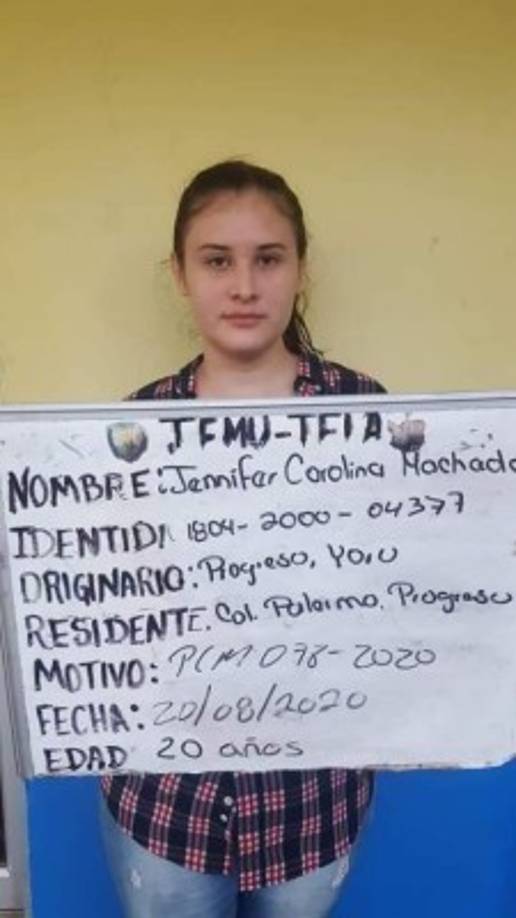 JEMU-TELA
NOMBRE: Jennifer Carolina Machado
IDENTID: 1804-2000-04377
ORIGINARIO: Progreso, Yoro
RESIDENTE. Col. Palermo. Progreso
MOTIVO: PCM 078-2020
FECHA: 20/08/2020
EDAD 20 años